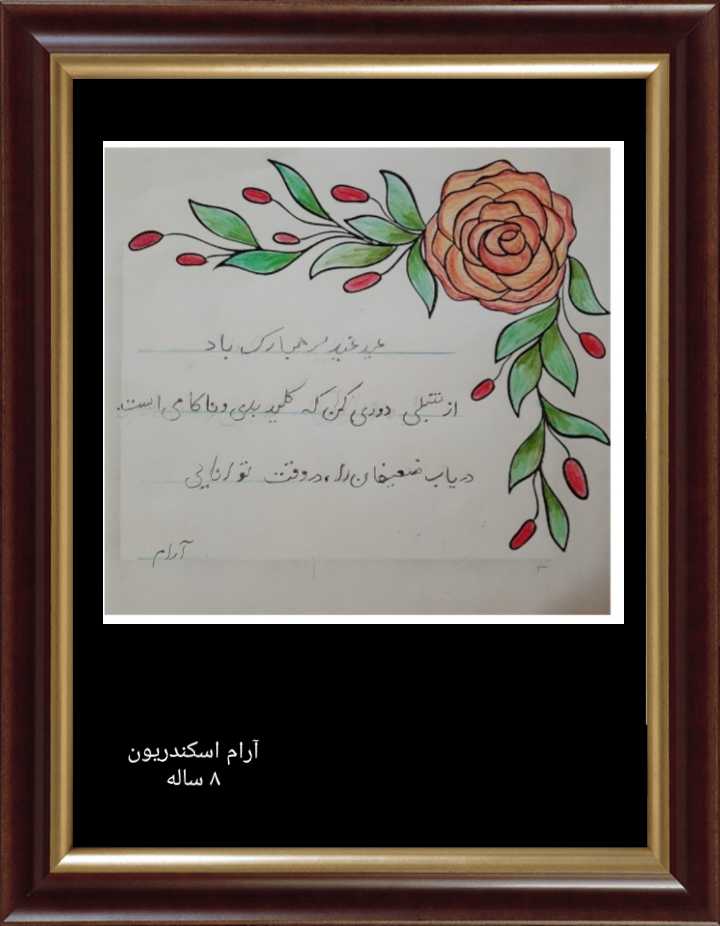 عید غدیر مبارک باد
از تنبلی دوری کن که کلید بدی و ناکامی است.
دریاب ضعیفان را، در وقت توانایی
آرام
آرام اسکندریون
۸ ساله